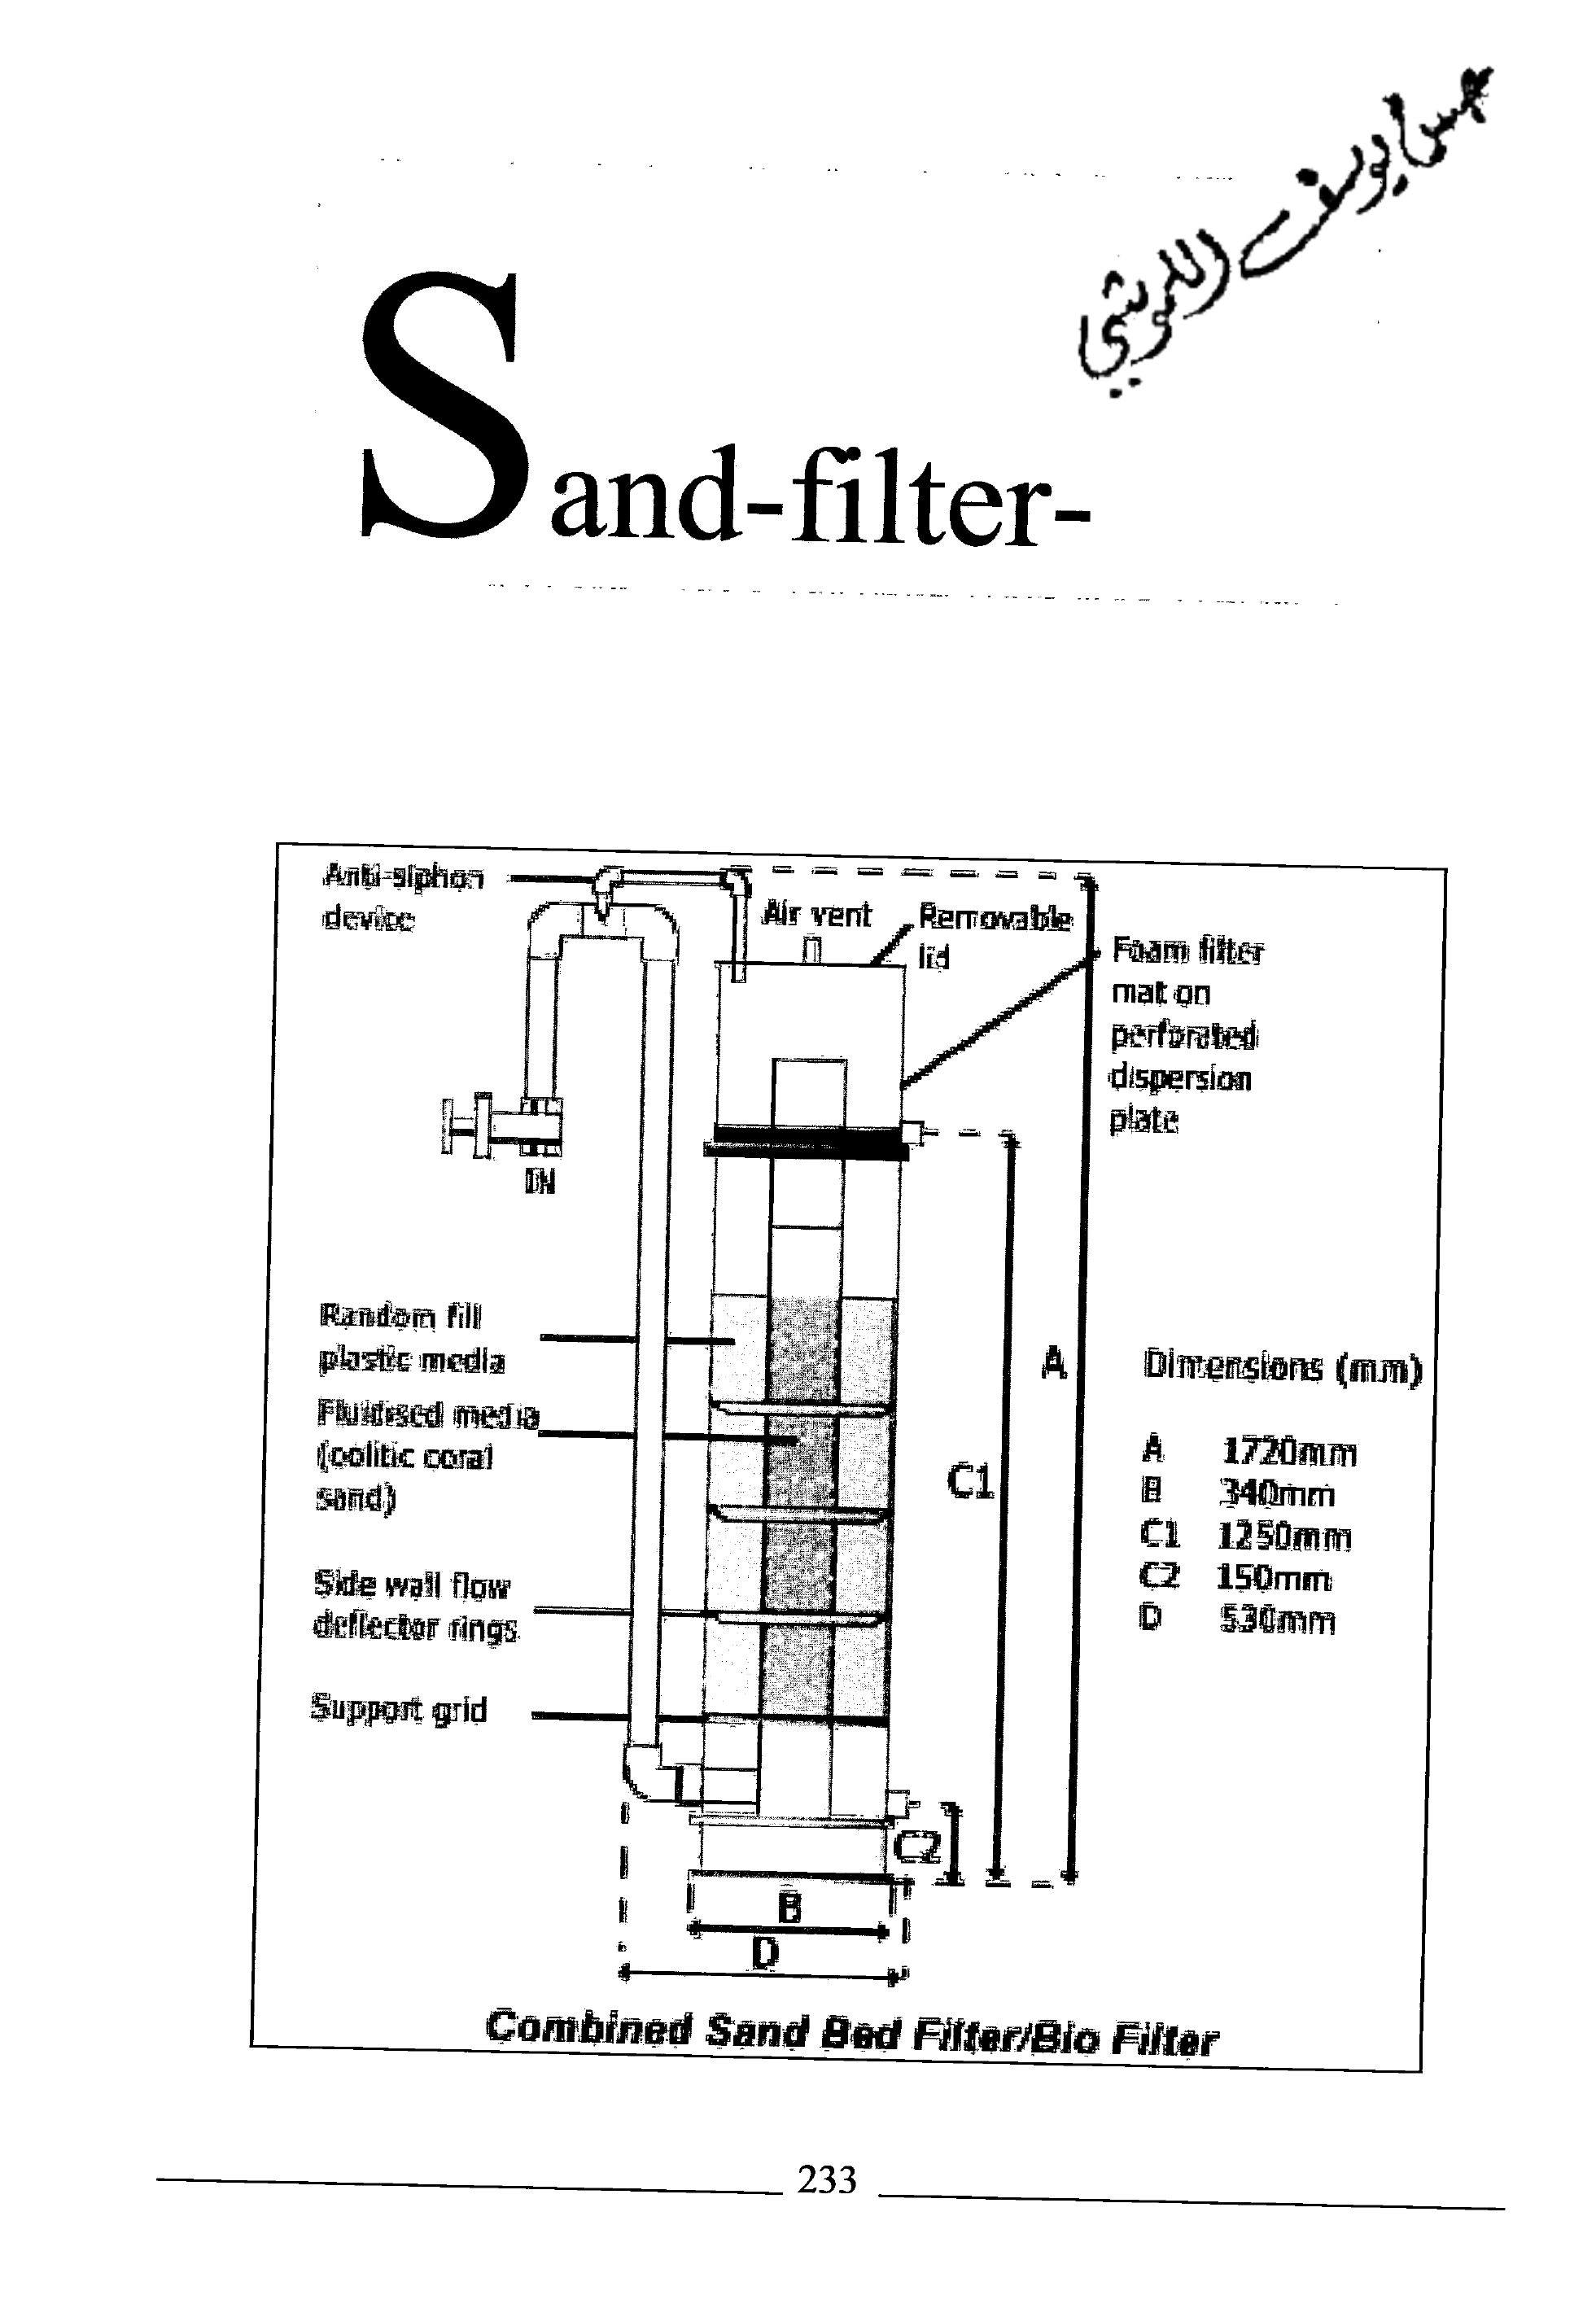 يوسف
Sand-filter-
Anti-siphon
device
Air vent
Removable
lid
Foam filter
mat on
perforated
dispersion
plate
IN
Random fill
plastic media
Fluidised media
(oolitic coral
sand)
Side wall flow
deflector rings
Support grid
C1
A
C2
B
D
Dimensions (mm)
A 1720mm
B 340mm
C1 1250mm
C2 150mm
D 530mm
Combined Sand Bed Filter/Bio Filter
233